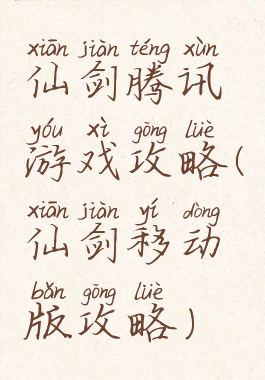 xiān jiàn téng xùn
仙剑腾讯
yóu xì gōng lüè
游戏攻略(
xiān jiàn yí dòng
仙剑移动
bǎn gōng lüè
版攻略)